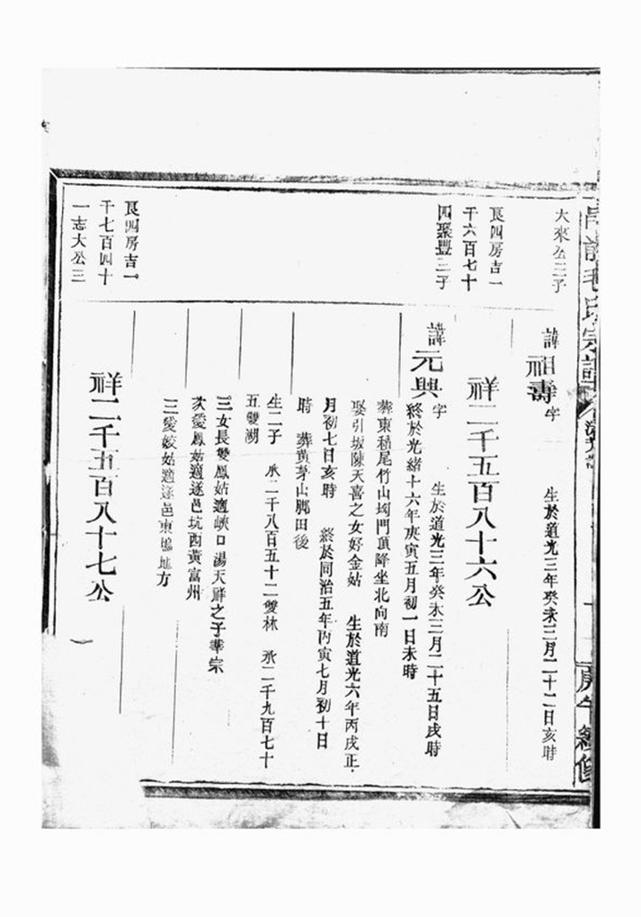 毛氏宗譜
庚午續修
大來公三子
諱祖壽字 生於道光三年癸未三月二十二日亥時
祥二千五百八十六公
艮四房吉一
千六百七十
四聚豐三子
諱元興字 生於道光三年癸未三月二十五日戌時
終於光緒十六年庚寅五月初一日未時
葬東積尾竹山垇門頂降坐北向南
娶引坂陳天喜之女好金姑 生於道光六年丙戌正
月初七日亥時 終於同治五年丙寅七月初十日
時 葬黃茅山腳田後
生二子 承二千八百五十二雙林 承二千九百七十
五雙湖
三女長雙鳳姑適峽口湯天祥之子華宗
次愛鳳姑適遂邑坑西黃富州
三愛姣姑適遂邑東塢地方
祥二千五百八十七公
艮四房吉一
千七百四十
一志大公三